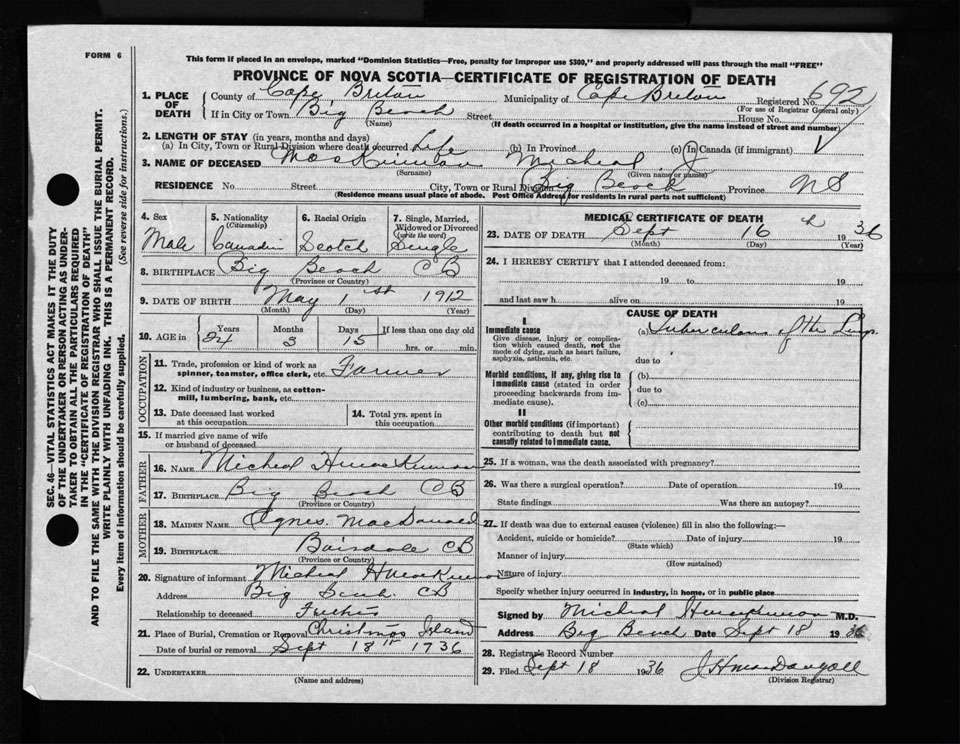 FORM 6
This form if placed in an envelope, marked "Dominion Statistics—Free, penalty for improper use $300," and properly addressed will pass through the mail "FREE"
PROVINCE OF NOVA SCOTIA—CERTIFICATE OF REGISTRATION OF DEATH
1. PLACE OF DEATH
County of Cape Breton Municipality of Cape Breton Registered No. 692
(For use of Registrar General only)
If in City or Town Big Beach Street House No.
(Name) (If death occurred in a hospital or institution, give the name instead of street and number)
2. LENGTH OF STAY (in years, months and days)
(a) In City, Town or Rural Division where death occurred Life (b) In Province (c) In Canada (if immigrant)
3. NAME OF DECEASED MacKinnon Micheal J
(Surname) (Given name or names)
RESIDENCE No. Street City, Town or Rural Division Big Beach Province NS
(Residence means usual place of abode. Post Office Address for residents in rural parts not sufficient)
4. Sex
Male
5. Nationality
(Citizenship)
Canadin
6. Racial Origin
Scotch
7. Single, Married, Widowed or Divorced
(write the word)
Single
8. BIRTHPLACE Big Beach CB
(Province or Country)
9. DATE OF BIRTH May 1st 1912
(Month) (Day) (Year)
10. AGE in Years Months Days If less than one day old
24 3 15 hrs. or min.
OCCUPATION
11. Trade, profession or kind of work as
spinner, teamster, office clerk, etc. Farmer
12. Kind of industry or business, as cotton-
mill, lumbering, bank, etc.
13. Date deceased last worked
at this occupation
14. Total yrs. spent in
this occupation
15. If married give name of wife
or husband of deceased
FATHER
16. NAME Micheal H MacKinnon
17. BIRTHPLACE Big Beach CB
(Province or Country)
MOTHER
18. MAIDEN NAME Agnes MacDonald
19. BIRTHPLACE Boisdale CB
(Province or Country)
20. Signature of informant Micheal H MacKinnon
Address Big Beach CB
Relationship to deceased Father
21. Place of Burial, Cremation or Removal Christmas Island
Date of burial or removal Sept 18th 1936
22. UNDERTAKER
(Name and address)
MEDICAL CERTIFICATE OF DEATH
23. DATE OF DEATH Sept 16th 1936
(Month) (Day) (Year)
24. I HEREBY CERTIFY that I attended deceased from:
19 to 19
and last saw h alive on 19
CAUSE OF DEATH
I
Immediate cause (a) Tuberculosis of the Lungs
Give disease, injury or complica-
tion which caused death, not the
mode of dying, such as heart failure,
asphyxia, asthenia, etc.
due to
Morbid conditions, if any, giving rise to
immediate cause (stated in order
proceeding backwards from im-
mediate cause).
(b)
due to
(c)
II
Other morbid conditions (if important)
contributing to death but not
causally related to immediate cause.
25. If a woman, was the death associated with pregnancy?
26. Was there a surgical operation? Date of operation 19
State findings Was there an autopsy?
27. If death was due to external causes (violence) fill in also the following:—
Accident, suicide or homicide? Date of injury 19
(State which)
Manner of injury
(How sustained)
Nature of injury
Specify whether injury occurred in industry, in home, or in public place
Signed by Micheal H MacKinnon M.D.
Address Big Beach Date Sept 18 1936
28. Registrar's Record Number
29. Filed Sept 18 1936 J H MacDougall
(Division Registrar)
SEC. 46—VITAL STATISTICS ACT MAKES IT THE DUTY
OF THE UNDERTAKER OR PERSON ACTING AS UNDER-
TAKER TO OBTAIN ALL THE PARTICULARS REQUIRED
IN THE "CERTIFICATE OF REGISTRATION OF DEATH"
AND TO FILE THE SAME WITH THE DIVISION REGISTRAR WHO SHALL ISSUE THE BURIAL PERMIT.
WRITE PLAINLY WITH UNFADING INK. THIS IS A PERMANENT RECORD.
Every item of information should be carefully supplied. (See reverse side for instructions.)